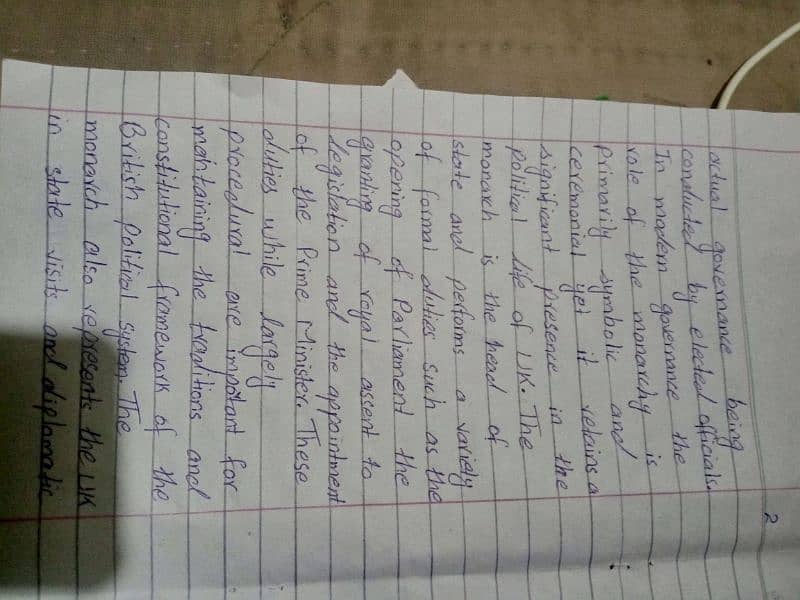 2
actual governance being
conducted by elected officials.
In modern governance the
role of the monarchy is
primarily symbolic and
ceremonial yet it retains a
significant presence in the
political life of UK. The
monarch is the head of
state and performs a variety
of formal duties such as the
opening of Parliament the
granting of royal assent to
legislation and the appointment
of the Prime Minister. These
duties while largely
procedural are important for
maintaining the traditions and
constitutional framework of the
British political system. The
monarch also represents the UK
in state visits and diplomatic